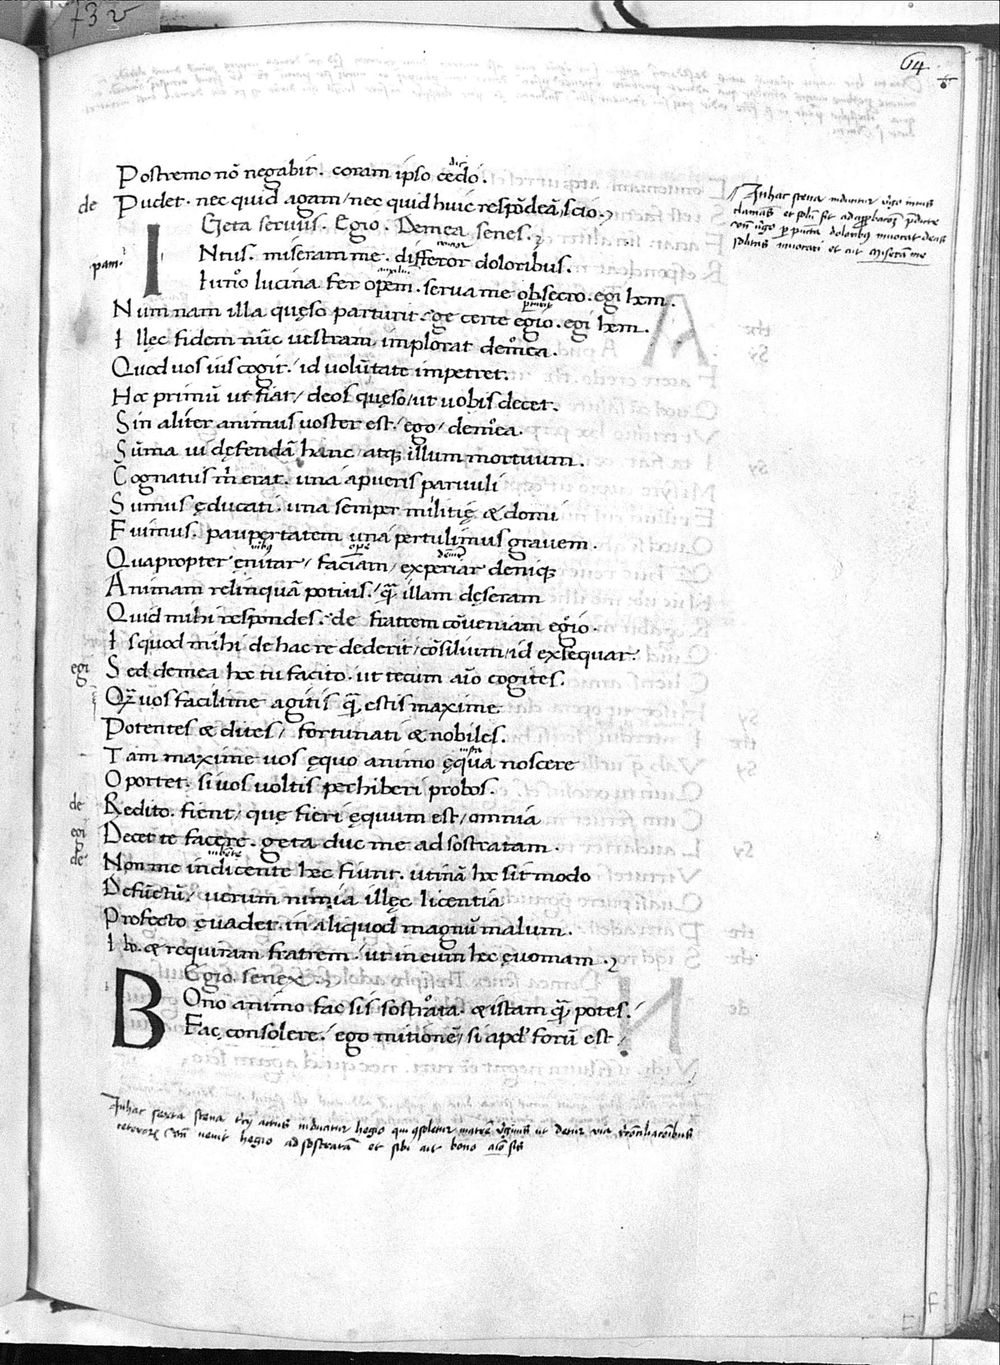 73 v
64
Postremo nō negabit. coram ipso cedo.
de Pudet. nec quid agam / nec quid huic respōdeā / scio.
Geta seruus. Egio. Demea senes.
pam. INtus. miseram me. differor doloribus.
Iuno lucina fer opem. serua me obsecro. egi hem.
Num nam illa quęso parturit. ge certe egio. egi hem.
Illęc fidem nūc uestram implorat demea.
Quod uos ius cogit. id uolūtate impetret.
Hoc primū ut fiat / deos quęso / ut uobis decet.
Sin aliter animus uoster est. ego / demea.
Sūma ui dęfendā hanc atq; illum mortuum.
Cognatus m erat. una a pueris paruuli
Sumus ęducati. una semper militię & domi
Fuimus. paupertatem una pertulimus grauem.
Quapropter ęnitar / faciam / experiar deniq;
Animam relinquā potius. quā illam dęseram
Quid mihi respondes. de fratrem cōueniam egio.
Is quod mihi de hac re dederit / cōsilium / id exsequar.
egi Sed demea hoc tu facito. ut tecum aīo cogites.
Quā uos facilime agitis quā estis maxime
Potentes & dites / fortunati & nobiles.
Tam maxime uos ęquo animo ęqua noscere
Oportet. si uos uoltis perhiberi probos.
de Redito. fient / quę fieri ęquum est / omnia
egi Decet te facere. geta duc me ad sostratam.
de Non me indicente hęc fiunt. utinā hoc sit modo
Defūctū / uerum nimia illęc licentia
Profecto ęuadet. in aliquod magnū malum.
Ibo. & requiram fratrem. ut in eum hęc ęuomam.
Egio senex.
BOno animo fac sis sostrata. & istam quā potes.
Fac, consolere. ego mitionē / si apd' forū est.
In hac sexta scena
uenit hegio ad sostratam et sibi ait bono aīo sis
In hac scena inducitur